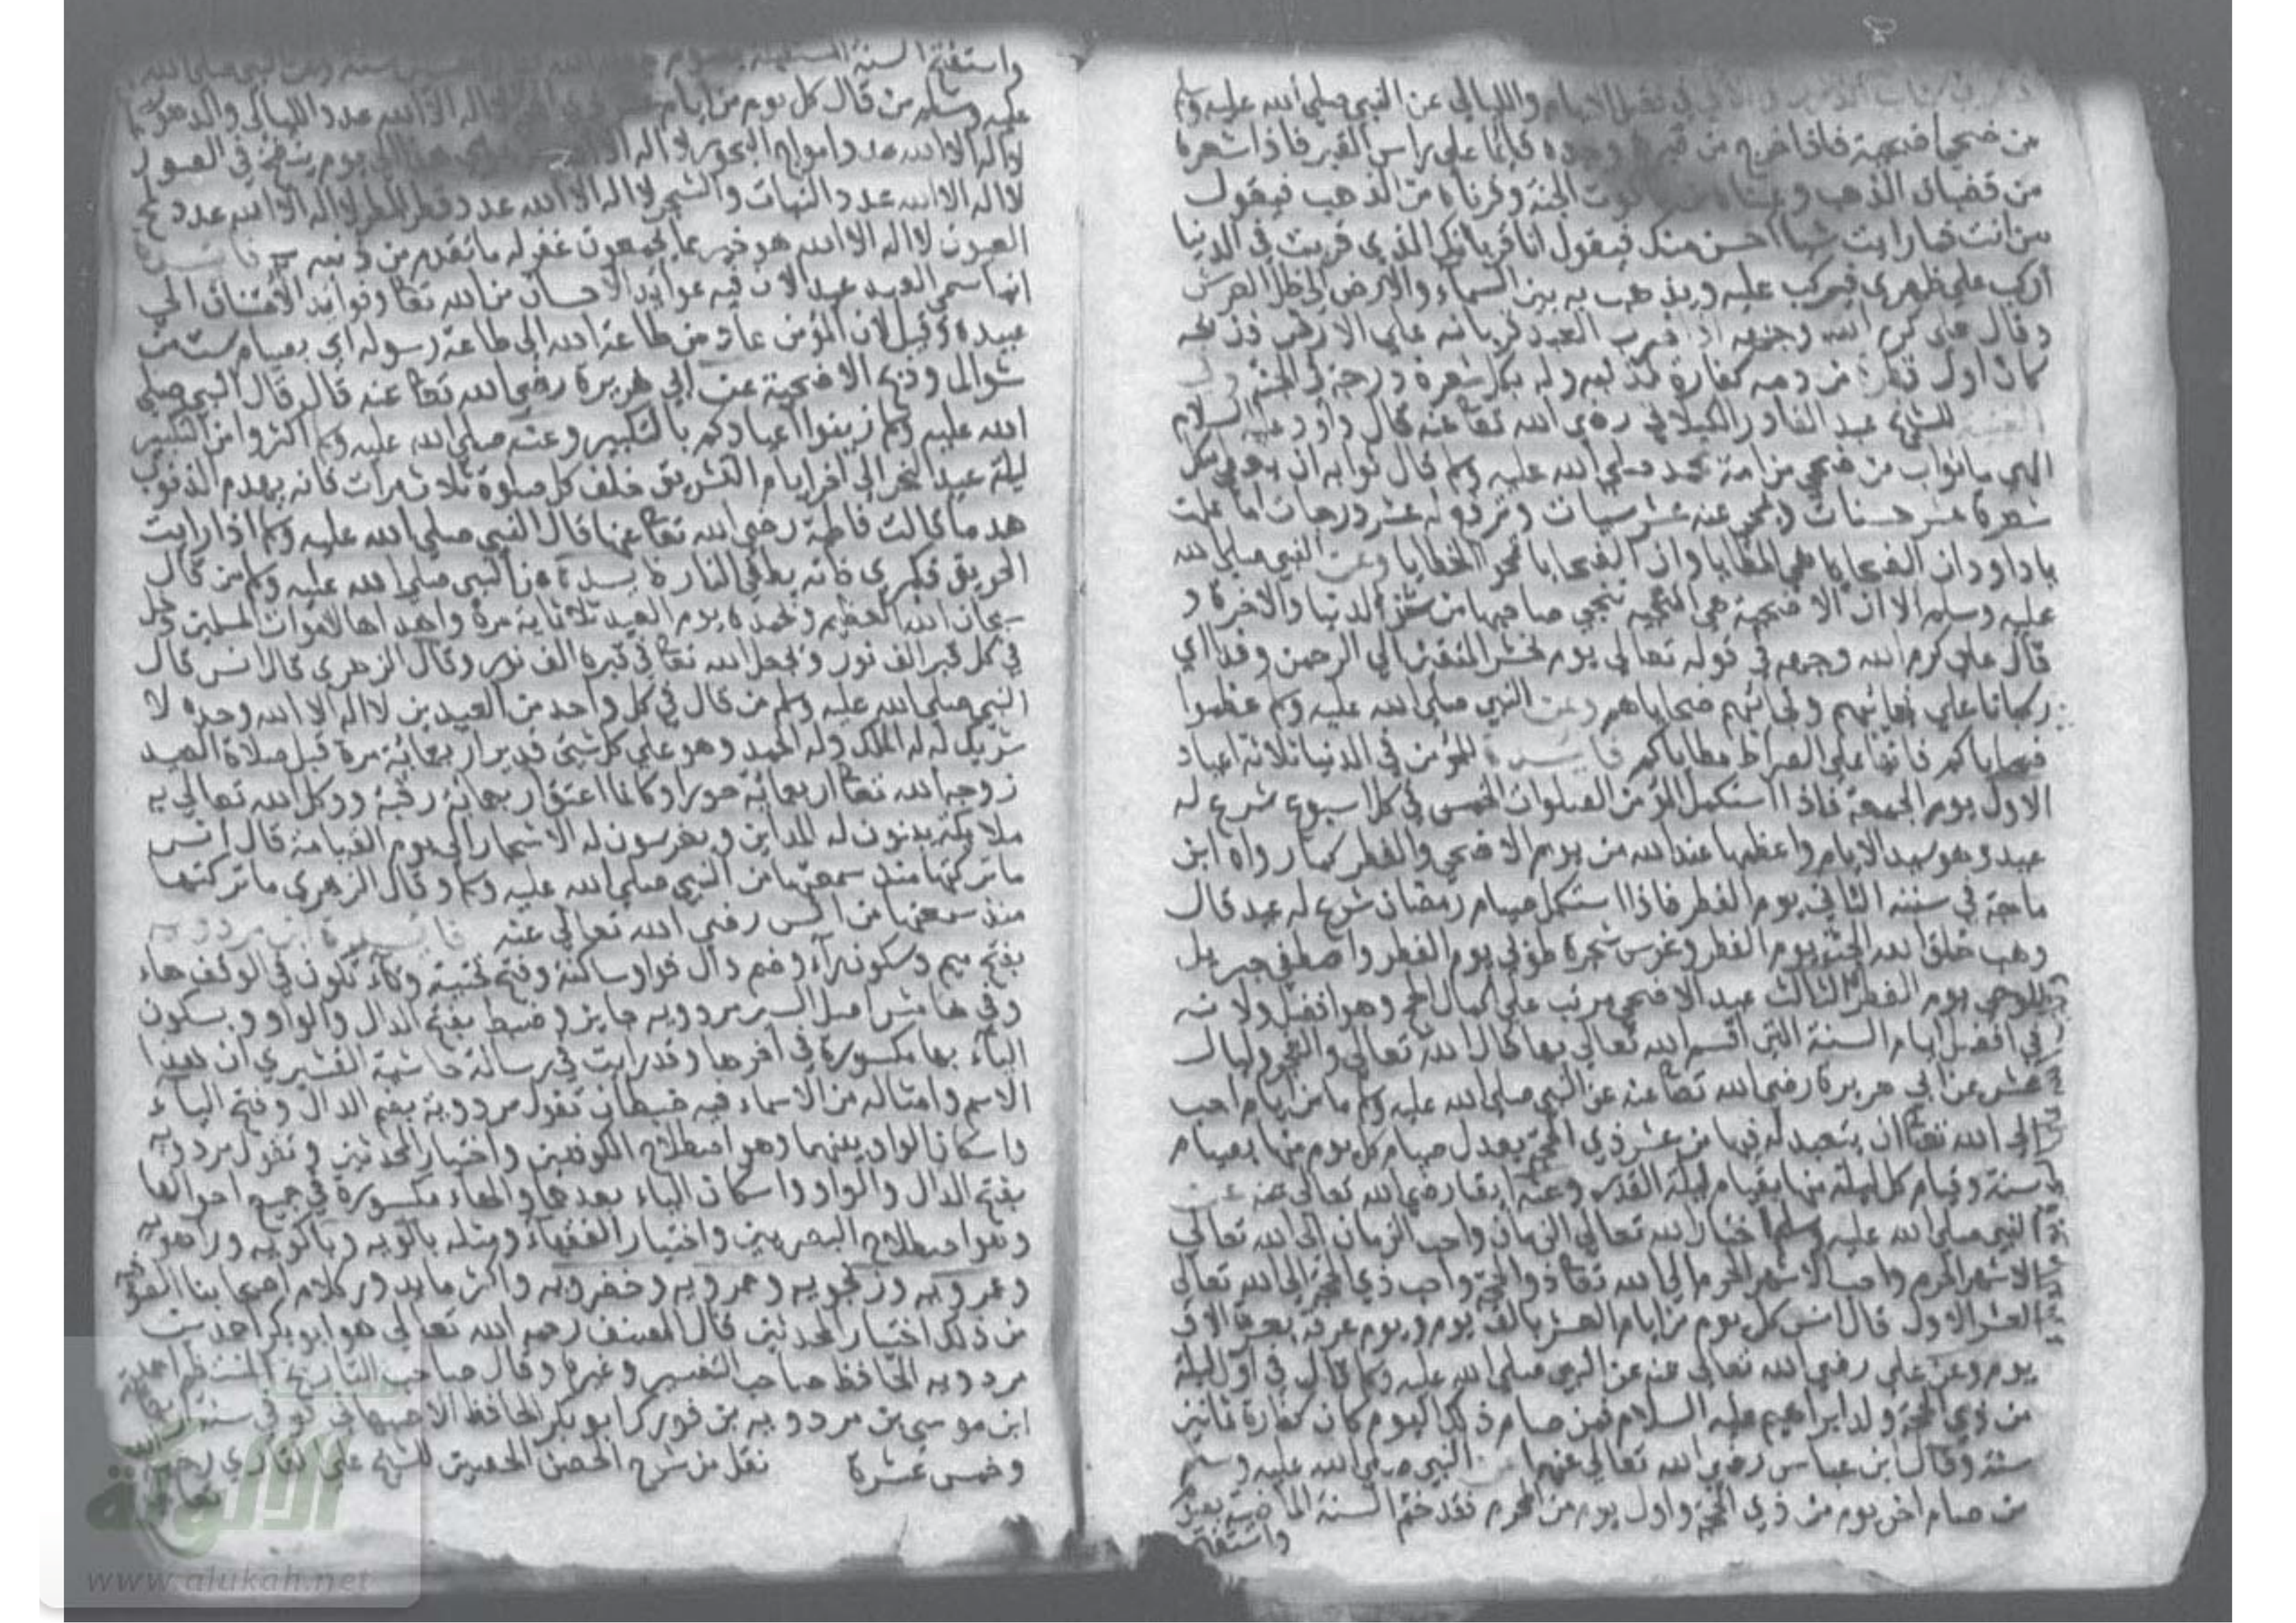 في فضل الايام والليالي عن النبي صلي الله عليه وسلم
من ضحي اضحية فاذا خرج من قبره وجده قايما علي راس القبر فاذا شعره
من قضبان الذهب وعيناه من ياقوت الجنة وقرناه من الذهب فيقول
من انت فما رايت شيا احسن منك فيقول انا قربانك الذي قربت في الدنيا
اركب علي ظهري فيركب عليه ويذهب به بين السماء والارض الي ظل العرش
وقال علي كرم الله وجهه اذا قرب العبد قربانه علي الارض فذبحه
كان اول قطرة من دمه كفارة لذنبه وله بكل شعرة درجة في الجنة
للشيخ عبد القادر الكيلاني رضي الله تعا عنه قال داود عليه السلام
الهي ما ثواب من ضحي من امة محمد صلي الله عليه وسلم قال ثوابه ان يعطي بكل
شعرة عشر حسنات ويمحي عنه عشر سيات وترفع له عشر درجات اما علمت
يا داود ان الضحايا هي المطايا وان الضحايا تمحو الخطايا وعن النبي صلي الله
عليه وسلم الا ان الاضحية هي المنجية تنجي صاحبها من شر الدنيا والاخرة و
قال علي كرم الله وجهه في قوله تعالي يوم نحشر المتقين الي الرحمن وفدا اي
ركبانا علي نجائبهم ونجائبهم ضحاياهم وعن النبي صلي الله عليه وسلم عظموا
ضحاياكم فانها علي الصراط مطاياكم فايدة للمؤمن في الدنيا ثلاثة اعياد
الاول يوم الجمعة فاذا استكمل المؤمن الصلوات الخمس في كل اسبوع شرع له
عيد وهو سيد الايام واعظمها عند الله من يوم الاضحي والفطر كما رواه ابن
ماجة في سننه الثاني يوم الفطر فاذا استكمل صيام رمضان شرع له عيد قال
وهب خلق الله الجنة يوم الفطر وغرس شجرة طوبي يوم الفطر واصطفي جبريل
للوحي يوم الفطر الثالث عيد الاضحي مرتب علي اكمال الحج وهو افضل ولانه
في افضل ايام السنة التي اقسم الله تعالي بها قال الله تعالي والفجر وليال
عشر عن ابي هريرة رضي الله تعا عنه عن النبي صلي الله عليه وسلم ما من ايام احب
الي الله تعا ان يتعبد له فيها من عشر ذي الحجة يعدل صيام كل يوم منها بصيام
سنة وقيام كل ليلة منها بقيام ليلة القدر وعنه ايضا رضي الله تعالي عنه عن
النبي صلي الله عليه وسلم اختار الله تعالي الزمان واحب الزمان الي الله تعالي
الاشهر الحرم واحب الاشهر الحرم الي الله تعا ذو الحجة واحب ذي الحجة الي الله تعالي
العشر الاول قال انس كل يوم من ايام العشر بالف يوم ويوم عرفة بعشرة الاف
يوم وعن علي رضي الله تعالي عنه عن النبي صلي الله عليه وسلم قال في اول ليلة
من ذي الحجة ولد ابراهيم عليه السلام فمن صام ذلك اليوم كان كفارة ثمانين
سنة وقال ابن عباس رضي الله تعالي عنهما عن النبي صلي الله عليه وسلم
من صام اخر يوم من ذي الحجة واول يوم من المحرم فقد ختم السنة الماضية بصوم
واستفتح
واستفتح السنة المستقبلة بصوم
عليه وسلم من قال كل يوم من ايام لا اله الا الله عدد الليالي والدهور
لا اله الا الله عدد امواج البحور لا اله الا الله يوم ينفخ في الصور
لا اله الا الله عدد النبات والشجر لا اله الا الله عدد قطر المطر لا اله الا الله عدد لمح
العيون لا اله الا الله هو خير مما يجمعون غفر له ما تقدم من ذنبه فايدة
انما سمي العيد عيد الان فيه عوايد الاحسان من الله تعا وفوايد الامتنان الي
عبيده وقيل لان المؤمن عاد من طاعة الله الي طاعة رسوله اي بصيام ست من
شوال وذبح الاضحية عن ابي هريرة رضي الله تعا عنه قال قال النبي صلي
الله عليه وسلم زينوا اعيادكم بالتكبير وعنه صلي الله عليه وسلم اكثروا من التكبير
ليلة عيد النحر الي اخر ايام التشريق خلف كل صلوة ثلاث مرات فانه يهدم الذنوب
هدما قالت فاطمة رضي الله تعا عنها قال النبي صلي الله عليه وسلم اذا رايت
الحريق فكبري فانه يطفي النار فايدة عن النبي صلي الله عليه وسلم من قال
سبحان الله العظيم وبحمده يوم العيد ثلاثماية مرة واهداها لاموات المسلمين دخل
في كل قبر الف نور ويجعل الله تعا في قبره الف نور وقال الزهري قال انس قال
النبي صلي الله عليه وسلم من قال في كل واحد من العيدين لا اله الا الله وحده لا
شريك له له الملك وله الحمد وهو علي كل شيئ قدير اربعمائة مرة قبل صلاة العيد
زوجه الله تعا اربعمائة حورا وكانما اعتق اربعمائة رقبة ووكل الله تعالي به
ملايكة يبنون له المداين ويغرسون له الاشجار الي يوم القيامة قال انس
ما تركتها منذ سمعتها من النبي صلي الله عليه وسلم وقال الزهري ما تركتها
منذ سمعتها من انس رضي الله تعالي عنه فايدة ابن مردويه
بفتح ميم وسكون راء وضم دال فواو ساكنة وفتح تحتية وتاء تكون في الوقف هاء
وفي هامش اصل السير مردويه جايز وضبط بفتح الدال والواو وبسكون
الياء بها مكسورة في اخرها وقد رايت في رسالة حاشية القشيري ان هذا
الاسم وامثاله من الاسماء فيه ضبطان تقول مردوية بضم الدال وفتح الياء
واسكان الواو بينهما وهو اصطلاح الكوفيين واختيار المحدثين وتقول مردويه
بفتح الدال والواو واسكان الياء بعدها والهاء مكسورة في جميع احوالها
وهو اصطلاح البصريين واختيار الفقهاء ومثله بالويه وباكويه وراهويه
وعمرويه وزنجويه وحمدويه وخضرويه واكثر ما يدور كلام اصحابنا الصوفية
من ذلك اختيار المحدثين قال المصنف رحمه الله تعالي هو ابو بكر احمد بن
مردويه الحافظ صاحب التفسير وغيره وقال صاحب التاريخ المنتظم احمد
ابن موسي بن مردويه بن فورك ابو بكر الحافظ الاصبهاني توفي سنة اربعماية
وخمس عشرة نقل من شرح الحصن الحصين للشيخ علي القاري رحمه
تعالي
الألوكة
www.alukah.net